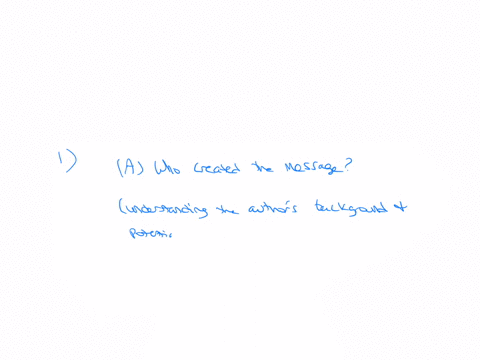 1) (A) Who created the message?
(understanding the author's background &
potentia